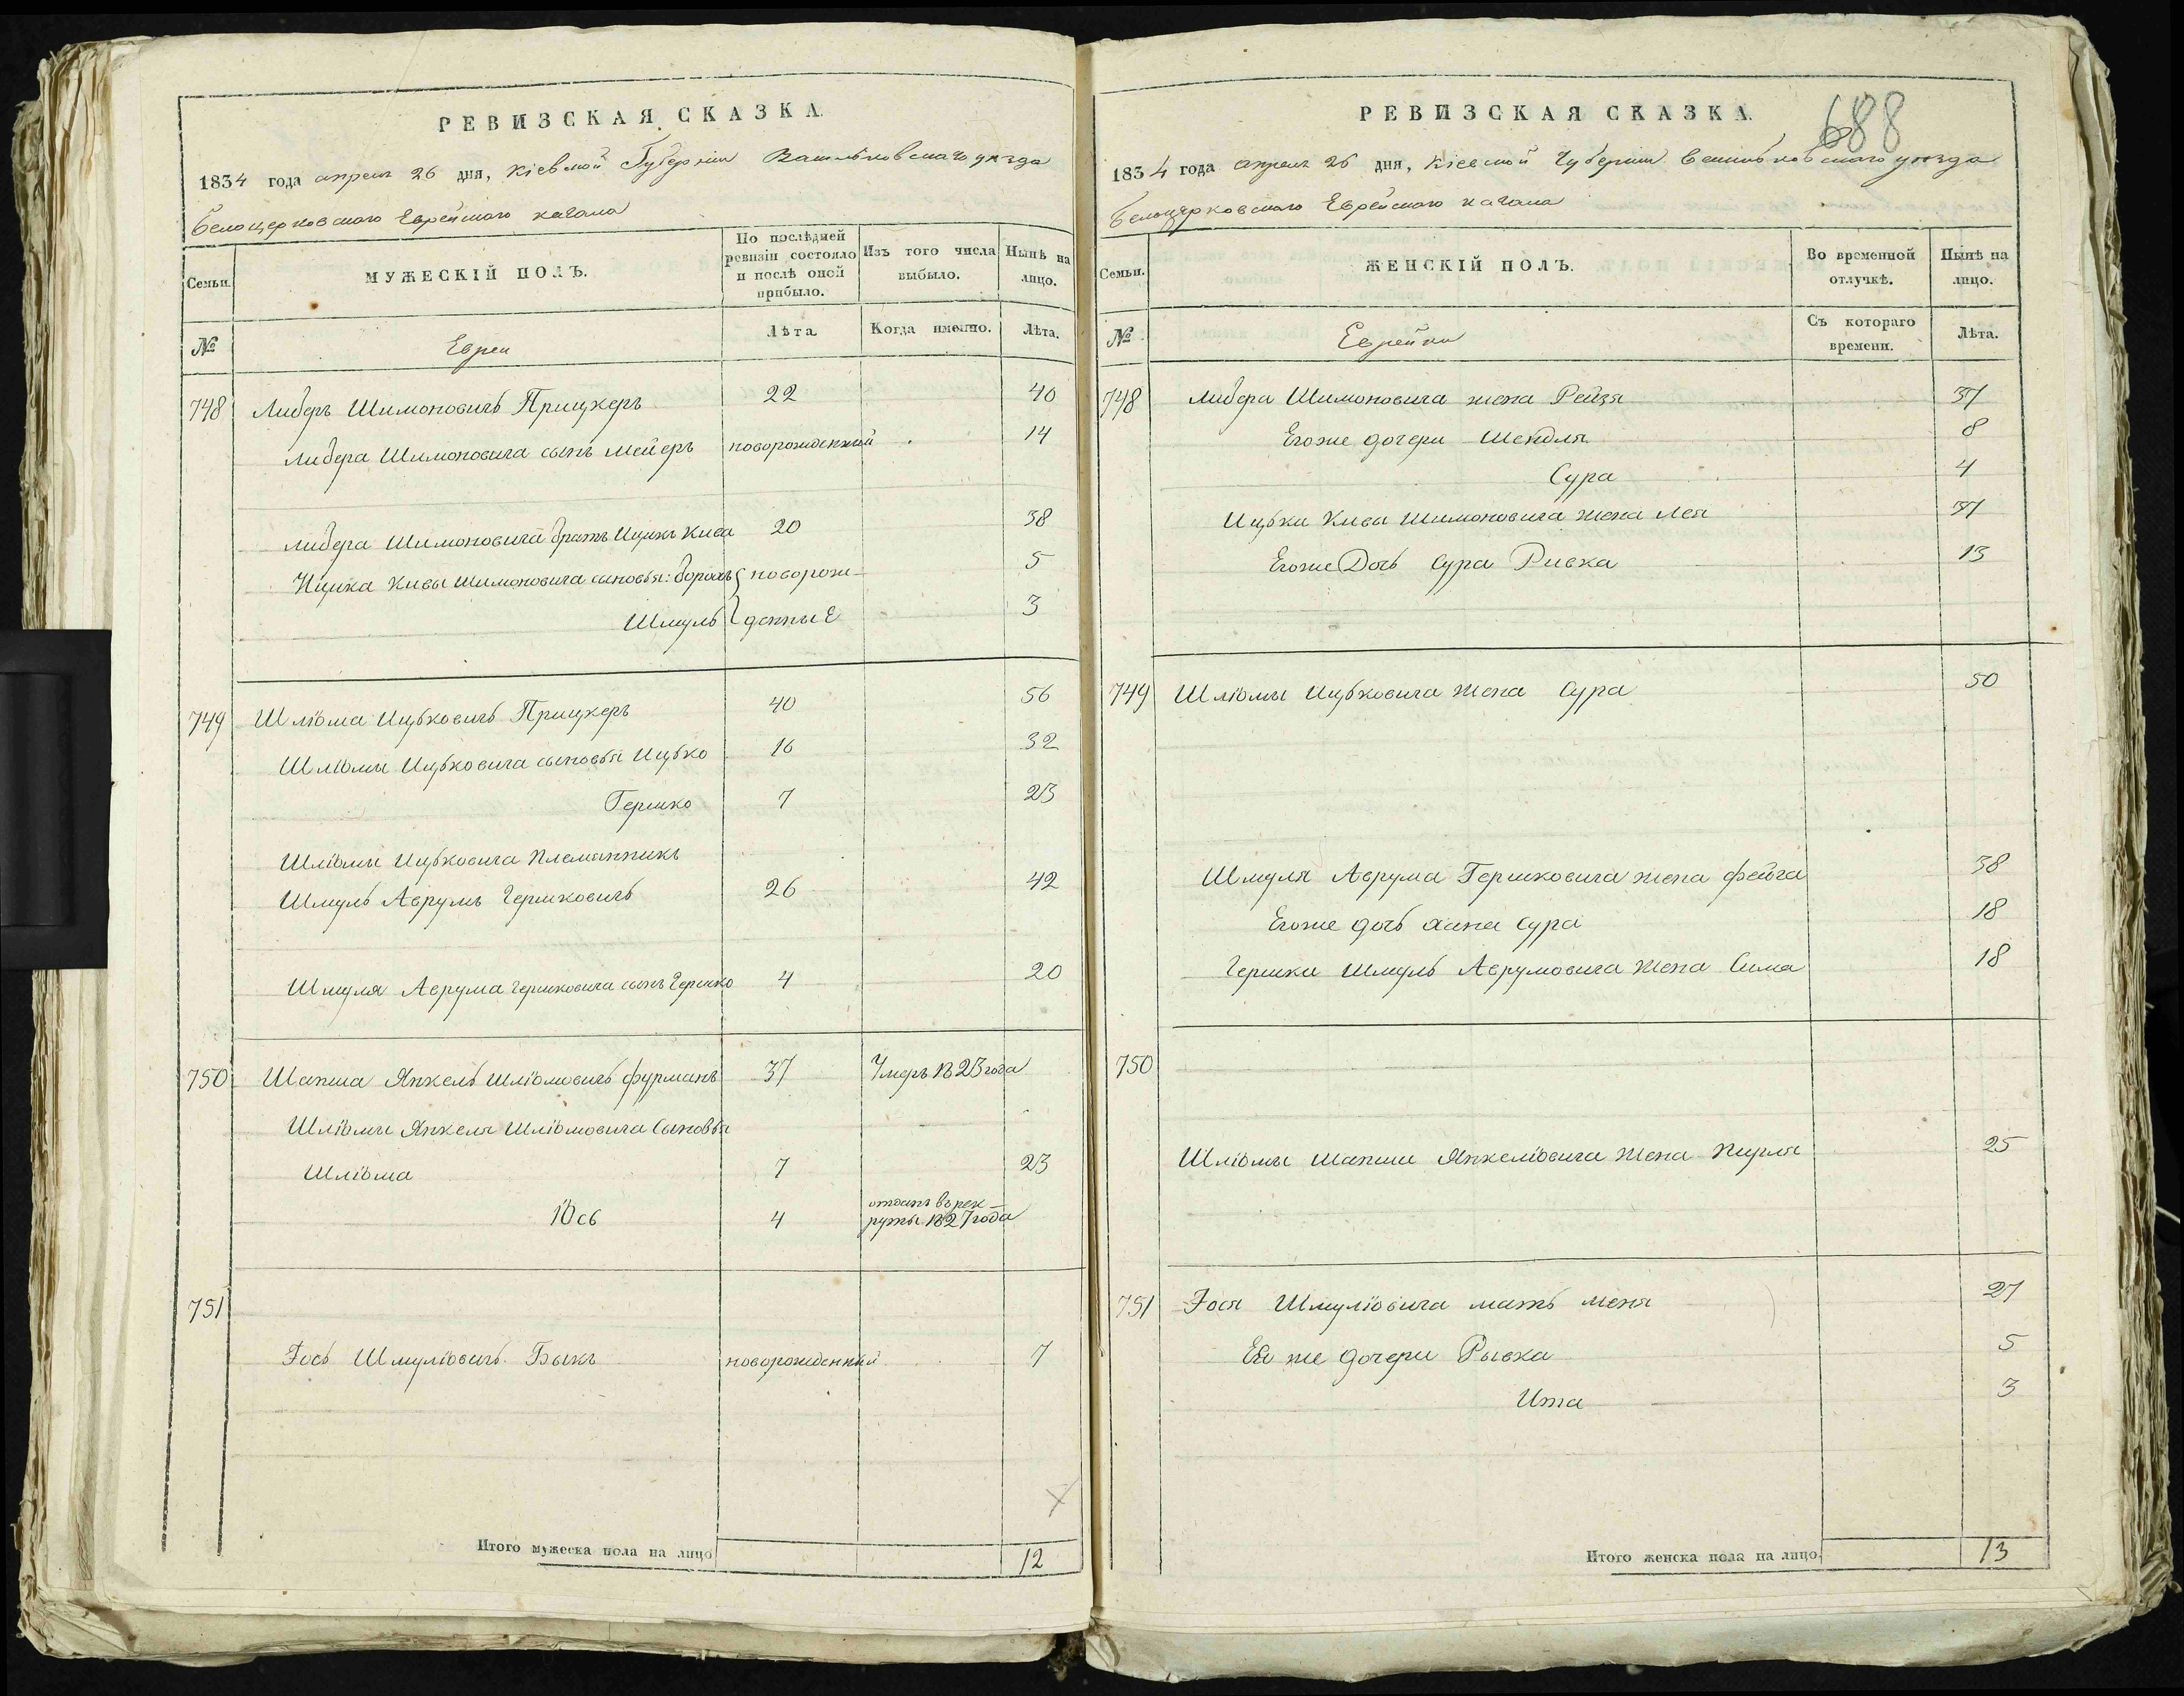 РЕВИЗСКАЯ СКАЗКА.
1834 года апреля 26 дня, Кіевской Губерніи Васильковскаго уѣзда
Белоцерковского Еврейского кагала
Семьи.
МУЖЕСКІЙ ПОЛЪ.
По послѣдней ревизіи состояло и послѣ оной прибыло.
Изъ того числа выбыло.
Нынѣ на лицо.
№
Евреи
Лѣта
Когда именно.
Лѣта.
748 Либеръ Шимоновичъ Прицкеръ 22 40
Либера Шимоновича сынъ Мейеръ новорожденный 14
Либера Шимоновича братъ Ицикъ Кива 20 38
Ицика Кивы Шимоновича сыновья: Борохъ новорож- 5
Шмуль денные 3
749 Шліома Ицьковичъ Прицкеръ 40 56
Шліомы Ицьковича сыновья Ицько 16 32
Гершко 7 23
Шліомы Ицьковича племянникъ
Шмуль Аврумъ Гершковичъ 26 42
Шмуля Аврума Гершковича сынъ Гершко 4 20
750 Шапша Янкель Шліомовичъ Фурманъ 37 Умеръ 1823 года
Шліомы Янкеля Шліомовича Сыновья
Шліома 7 23
Юсь 4 отданъ въ рек-
руты 1827 года
751
Іось Шмуліовичъ Быкъ новорожденный 7
Итого мужеска пола на лицо 12
688
РЕВИЗСКАЯ СКАЗКА.
1834 года апреля 26 дня, Кіевской Губерніи Васильковскаго уѣзда
Белоцерковского Еврейского кагала
Семьи.
ЖЕНСКІЙ ПОЛЪ.
Во временной отлучкѣ.
Нынѣ на лицо.
№
Еврейки
Съ котораго времени.
Лѣта.
748 Либера Шимоновича жена Рейзя 37
Егоже дочери Шендля 8
Сура 4
Ицька Кивы Шимоновича жена Лея 37
Егоже Дочь Сура Ривка 13
749 Шліомы Ицьковича жена Сура 50
Шмуля Аврума Гершковича жена Фейга 38
Егоже дочь Хана Сура 18
Гершки Шмуль Аврумовича жена Сима 18
750
Шліомы Шапши Янкеліовича жена Перля 25
751 Іося Шмуліовича мать Меня 27
Ею же дочери Рывка 5
Ита 3
Итого женска пола на лицо. 13